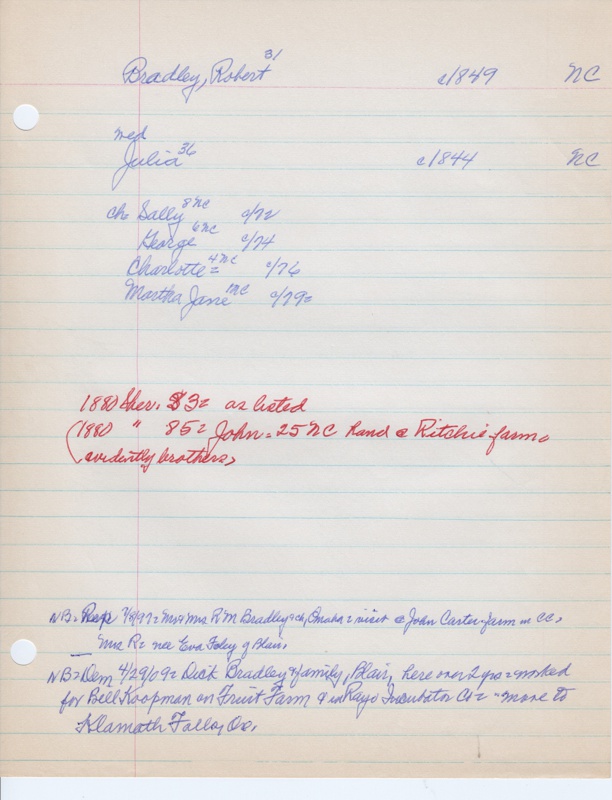 Bradley, Robert 31 c/1849 NC
med
Julia 36 c/1844 NC
ch= Sally 8 NC c/72
George 6 NC c/74
Charlotte= 4 NC c/76
Martha Jane 1 NC c/79=
1880 Sher. 83= as listed
(1880 " 85= John= 25 NC hand @ Ritchie farm=
evidently brothers,
NB= Rep 7/8/97= Mr & Mrs R M Bradley & ch, Omaha= visit @ John Carter farm in CC,
Mrs R= nee Eva Foley of Blair,
NB= Dem 4/29/09= Dick Bradley & family, Blair, here over 2 yrs= worked
for Bell Koopman on Fruit Farm & in Rayo Incubator Co= "move to
Klamath Falls, Ore,